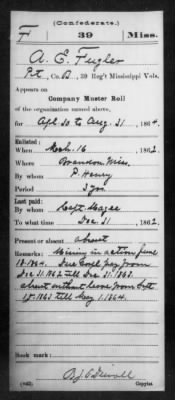 (Confederate.)
F 39 Miss.
A. E. Fugler
Pvt, Co. B, 39 Reg't Mississippi Vols.
Appears on
Company Muster Roll
of the organization named above,
for Apl 30 to Aug. 31, 1864.
Enlisted:
When Mch. 16, 1862
Where Brandon, Miss.
By whom P. Henry
Period 3 yrs.
Last paid:
By whom Capt. Magee
To what time Dec 31, 1862
Present or absent absent
Remarks: Missing in action June
18 1864. Due Confl pay from
Dec 31.1862 till Dec 31.1863.
absent without leave from Oct
1st 1863 till May 1.1864.
Book mark:
(642)
Copyist.